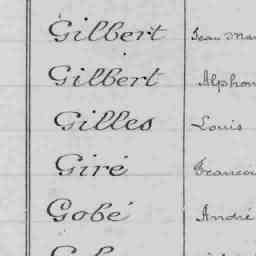 Gilbert Jean Mar
Gilbert Alphon
Gilles Louis
Giré Francoi
Gobé André